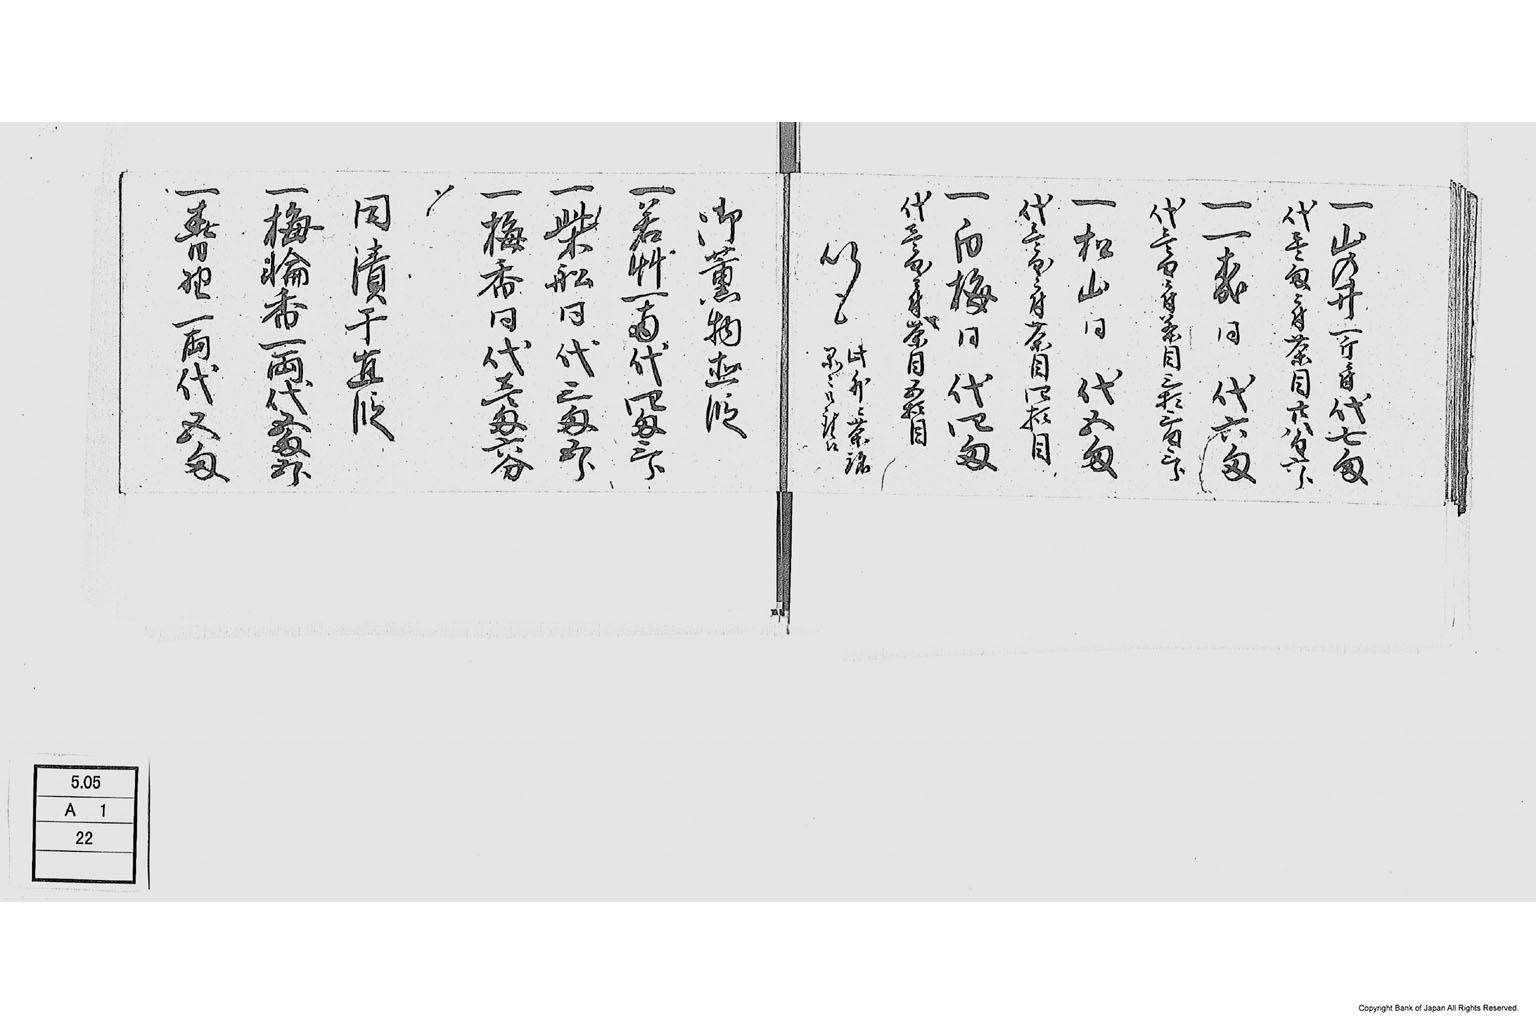 一山ノ井一斤ニ付代七匁
代壱匁ニ付茶目
一一森同代六匁
代壱匁ニ付茶目三拾
一松山同代五匁
代壱匁ニ付茶目四拾目
一白梅同代四匁
代壱匁ニ付茶目五拾目
〆
此外ニ茶
御薫物直段
一若艸一両代四匁三分
一柴船同代三匁五分
一梅香同代壱匁六分
〆
同漬干直段
一梅輪香一両代五匁五分
一春日野一両代五匁
5.05
A 1
22
Copyright Bank of Japan All Rights Reserved.